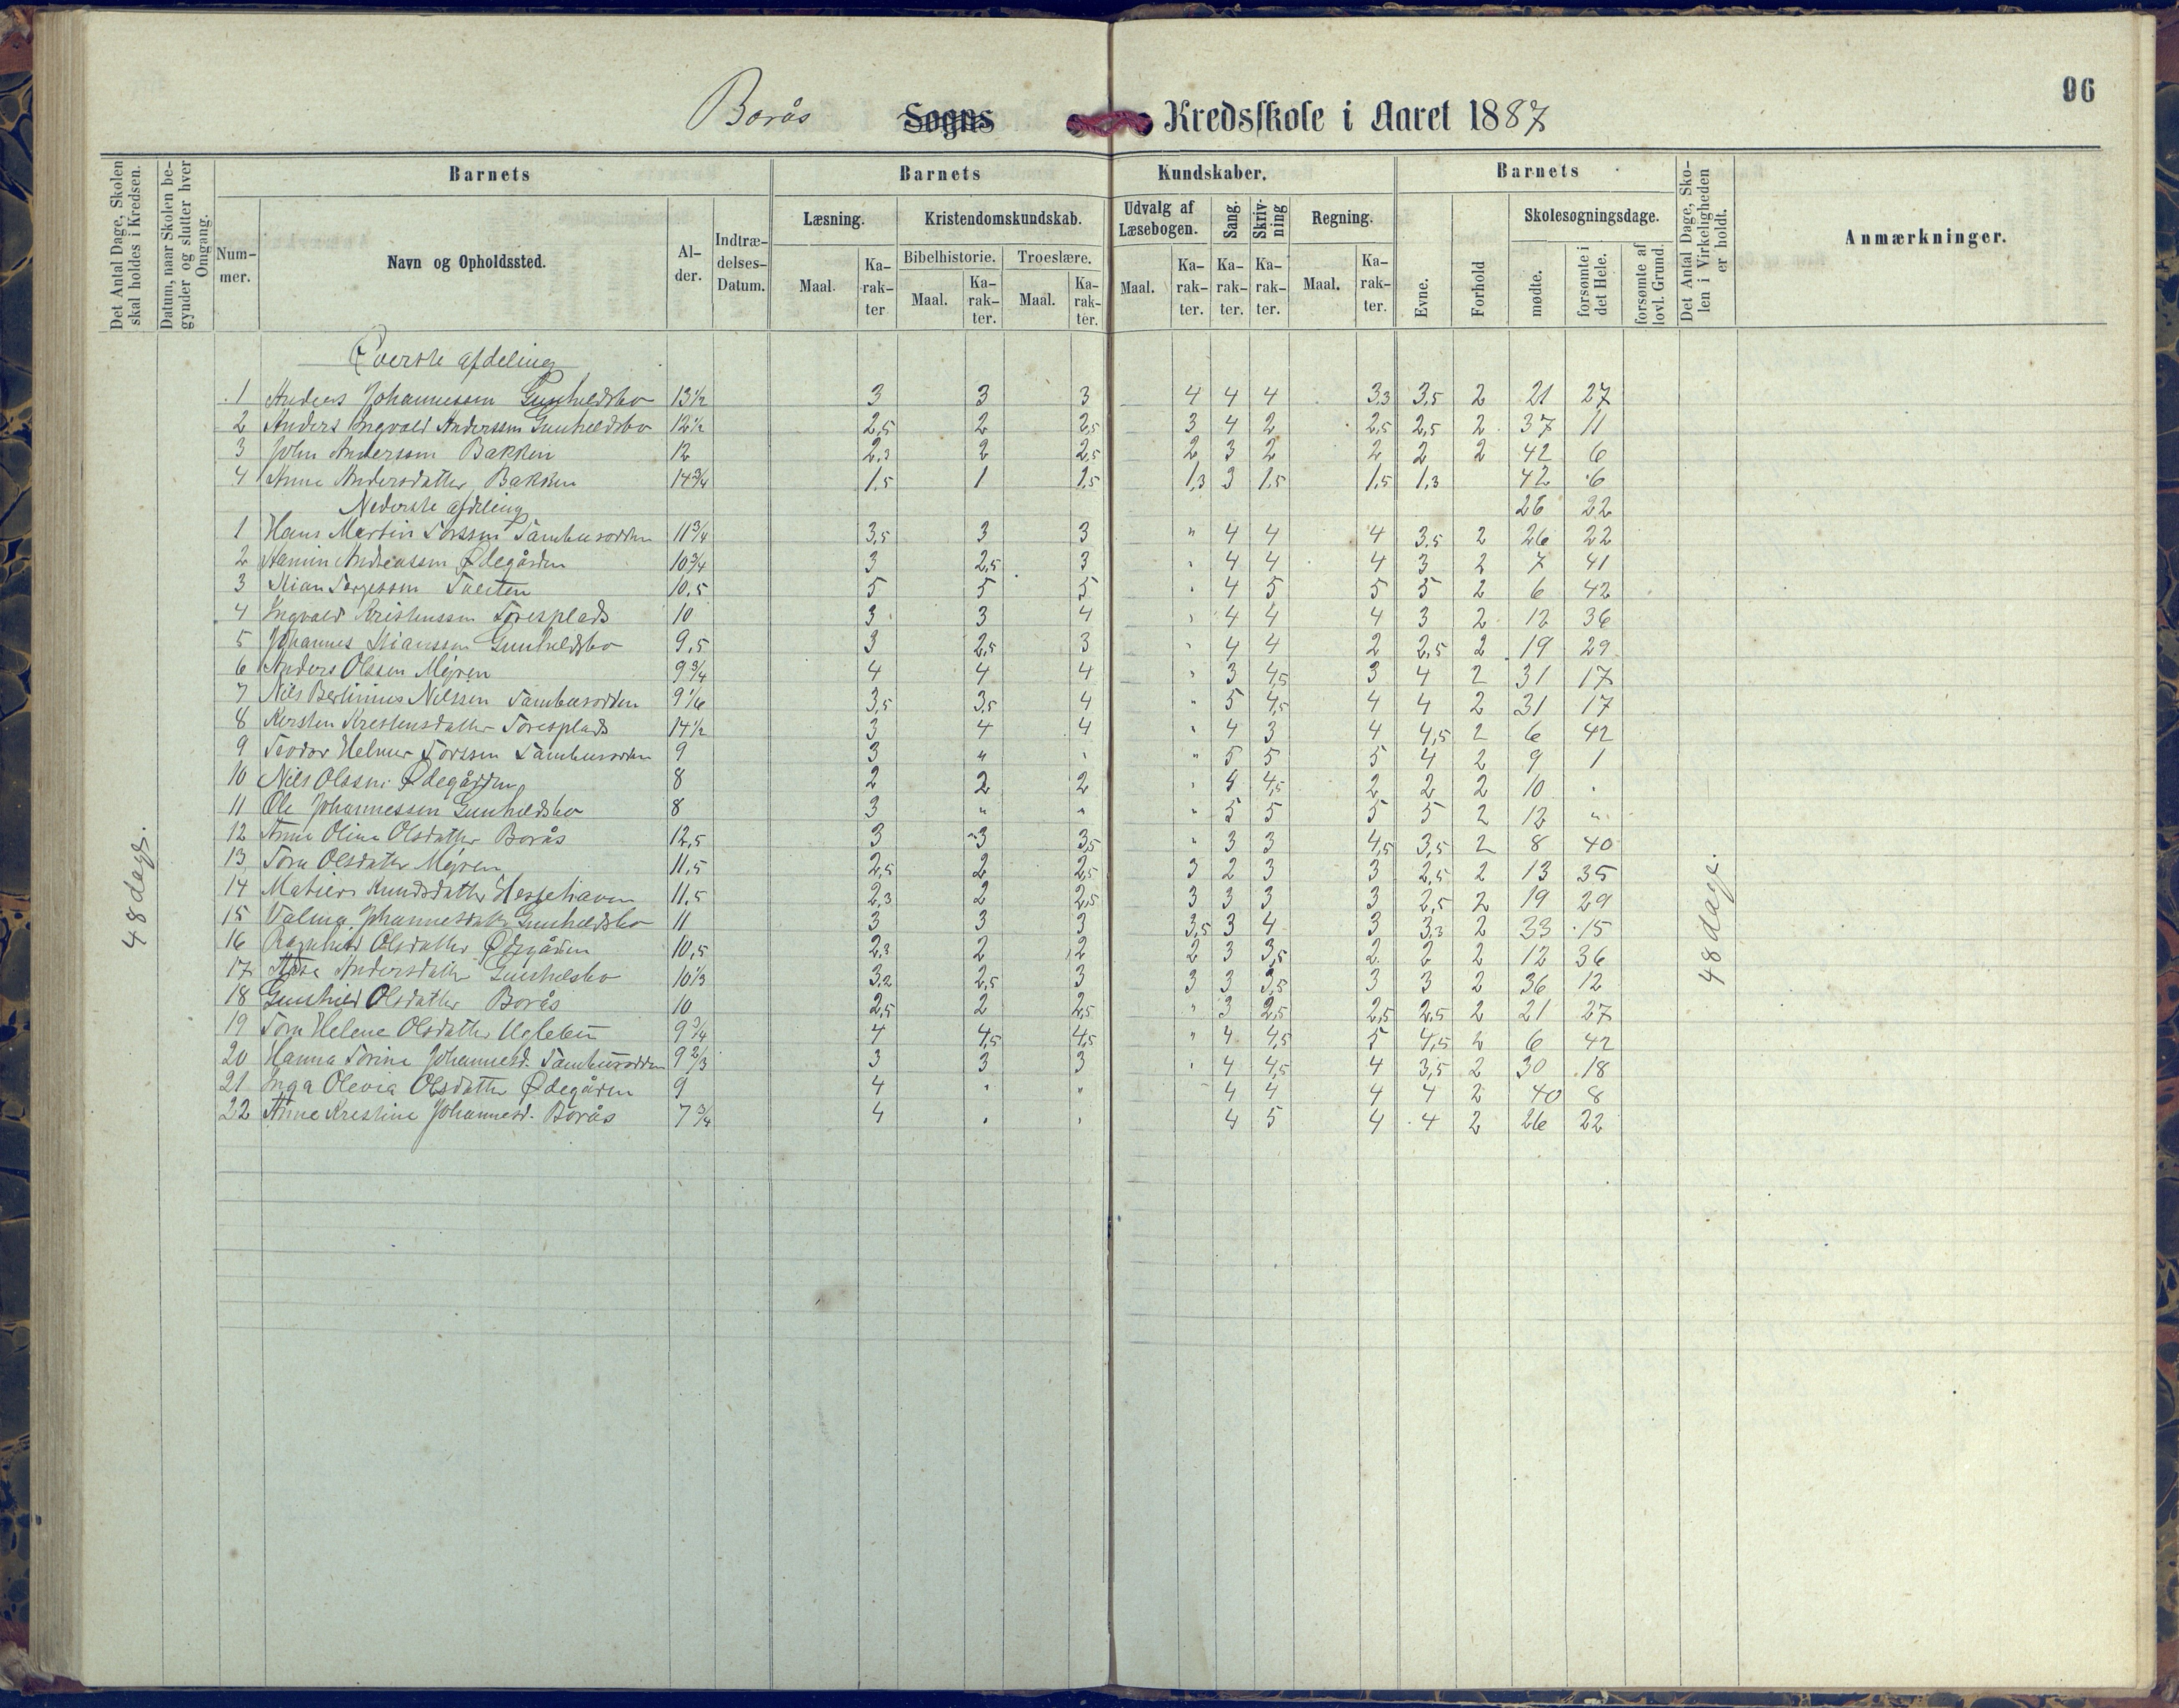 96
Borås Sogns Kredsskole i Aaret 1887
Det Antal Dage, Skolen skal holdes i Kredsen.
Datum, naar Skolen begynder og slutter hver Omgang.
Barnets
Barnets Kundskaber.
Barnets
Det Antal Dage, Skolen i Virkeligheden er holdt.
Anmærkninger.
Nummer.
Navn og Opholdssted.
Alder.
Indtrædelses-Datum.
Læsning.
Kristendomskundskab.
Udvalg af Læsebogen.
Sang.
Skrivning
Regning.
Evne.
Forhold
Skolesøgningsdage.
Bibelhistorie.
Troeslære.
Maal. Karakter Maal. Karakter. Maal. Karakter. Maal. Karakter. Karakter. Karakter. Maal. Karakter.
mødte. forsømte i det Hele. forsømte af lovl. Grund.
48 dage.
48 dage.
Øverste afdeling
1 Anders Johannessen Gunhildsbo 13½ 3 3 3 4 4 4 3,3 3,5 2 21 27
2 Anders Ingvald Anderssen Gunhildsbo 12½ 2,5 2 2,5 3 4 2 2,5 2,5 2 37 11
3 John Anderssen Bakken 12 2,3 2 2,5 2 3 2 2 2 2 42 6
4 Anne Andersdatter Bakken 14¾ 1,5 1 1,5 1,3 3 1,5 1,5 1,3 42 6
Nederste afdeling 26 22
1 Hans Martin Torssen Tambursodden 11¾ 3,5 3 3 " 4 4 4 3,5 2 26 22
2 Andreassen Ødegården 10¾ 3 2,5 3 " 4 4 4 3 2 7 41
3 Stian Torjessen Tveiten 10,5 5 5 5 " 4 5 5 5 2 6 42
4 Ingvald Kristenssen Toresplads 10 3 3 4 " 4 4 4 3 2 12 36
5 Johannes Stianssen Gunhildsbo 9,5 3 2,5 3 " 4 4 2 2,5 2 19 29
6 Anders Olssen Myren 9¾ 4 4 4 " 3 4,5 3 4 2 31 17
7 Nils Bertinius Nilssen Tambursodden 9 1/6 3,5 3,5 4 " 5 4,5 4 4 2 31 17
8 Kersten Kristensdatter Toresplads 14½ 3 4 4 " 4 3 4 4,5 2 6 42
9 Teodor Helmer Torssen Tambursodden 9 3 " " " 5 5 5 4 2 9 1
10 Nils Olssen Ødegården 8 2 2 2 " 4 4,5 2 2 2 10 "
11 Ole Johannessen Gunhildsbo 8 3 " " " 5 5 5 5 2 12 "
12 Anne Olina Olsdatter Borås 12,5 3 3 3,5 " 3 3 4,5 3,5 2 8 40
13 Tora Olsdatter Myren 11,5 2,5 2 2,5 3 2 3 3 2,5 2 13 35
14 Knudsdatter 11,5 2,3 2 2,5 3 3 3 3 2,5 2 19 29
15 Valina Johannesdatter Gunhildsbo 11 3 3 3 3,5 3 4 3 3,3 2 33 15
16 Ragnhild Olsdatter Ødegården 10,5 2,3 2 2 2 3 3,5 2 2 2 12 36
17 Andersdatter Gunhildsbo 10⅓ 3,2 2,5 3 3 3 3,5 3 3 2 36 12
18 Gunhild Olsdatter Borås 10 2,5 2 2,5 " 3 2,5 2,5 2,5 2 21 27
19 Helene Olsdatter 9¾ 4 4,5 4,5 " 4 4,5 5 4,5 2 6 42
20 Hanna Torine Johannesd. Tambursodden 9⅔ 3 3 3 " 4 4,5 4 3,5 2 30 18
21 Inga Olevia Olsdatter Ødegården 9 4 " " 4 4 4 4 2 40 8
22 Anne Kristine Johannesd. Borås 7¾ 4 " " 4 5 4 4 2 26 22